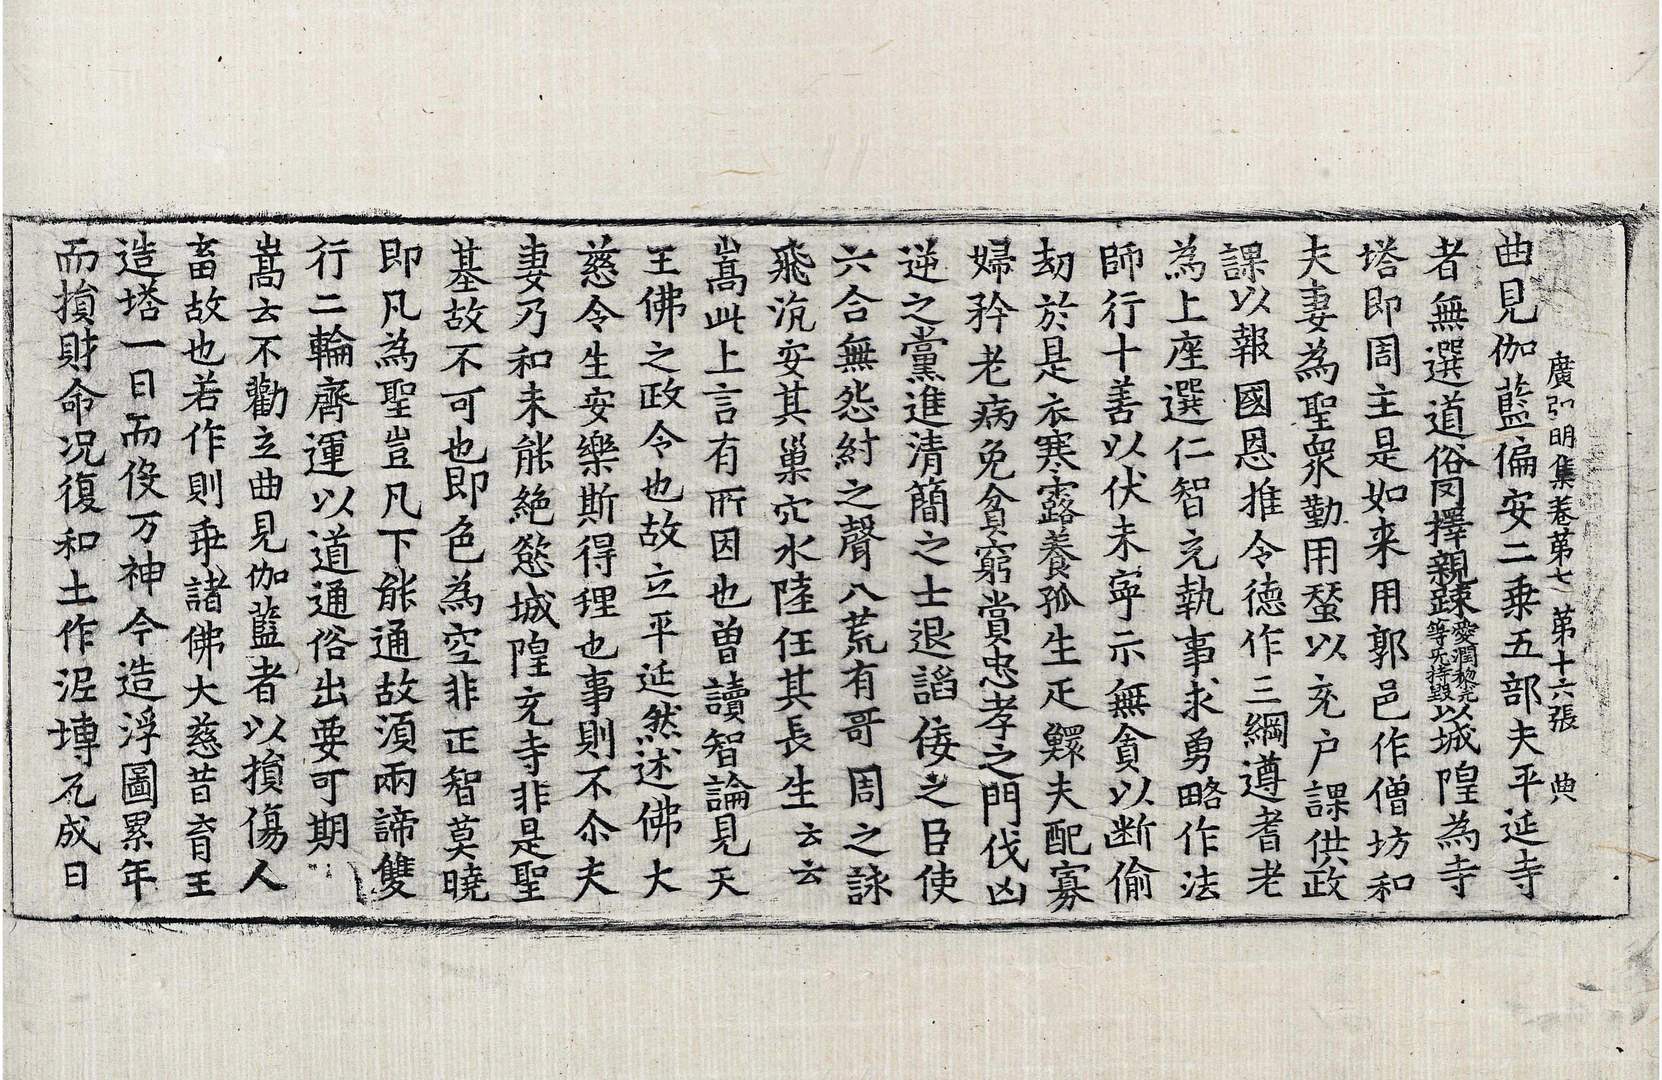 廣弘明集卷第七 第十六張 典
曲見伽藍偏安二乗五部夫平延寺
者無選道俗罔擇親踈愛潤黎元等無持毀以城隍為寺
塔即周主是如来用郭邑作僧坊和
夫妻為聖衆勤用蝅以充户課供政
課以報國恩推令德作三綱遵耆老
為上座選仁智充執事求勇略作法
師行十善以伏未寜示無貪以断偷
劫於是衣寒露養孤生疋鰥夫配寡
婦矜老病免貧窮賞忠孝之門伐凶
逆之黨進清簡之士退謟佞之臣使
六合無怨紂之聲八荒有哥周之詠
飛沉安其巢穴水陸任其長生云云
嵩此上言有所因也曽讀智論見天
王佛之政令也故立平延然述佛大
慈令生安樂斯得理也事則不尒夫
妻乃和未能絶慾城隍充寺非是聖
基故不可也即色為空非正智莫曉
即凡為聖豈凡下能通故湏兩諦雙
行二輪齊運以道通俗出要可期
嵩云不勸立曲見伽藍者以損傷人
畜故也若作則乖諸佛大慈昔育王
造塔一日而役万神今造浮圖累年
而損財命况復和土作泥塼瓦成日